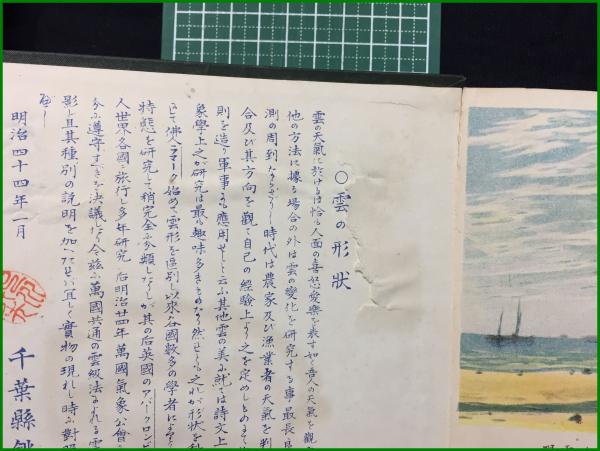 ○雲の形状
雲の天氣に於けるは恰も人面の喜怒愛樂を表す如く吾人の天氣を觀
他の方法に據る場合の外は雲の變化を研究する事最長
測の周到ならざりし時代は農家及び漁業者の天氣を判
合及び其方向を觀て自己の経験上より之を定めしものま
則を造り軍事にも應用せしと云ふ其他雲の美に就ては詩文上
象學上之が研究は最も趣味多きものなり然ども之れが形状を
佛人ラマーク始めて雲形を區別し以来各國數多の學者により
特態を研究して稍完全に分類したりしが其の后英國のアバークロンビ
人世界各國に旅行し多年研究の后明治廿四年萬國氣象公會
遵守すべきを決議せり今茲に萬國共通の雲級法による雲
影し且其種別の説明を加へたれば宜しく實物の現れし時に對照
明治四十四年一月
千葉縣